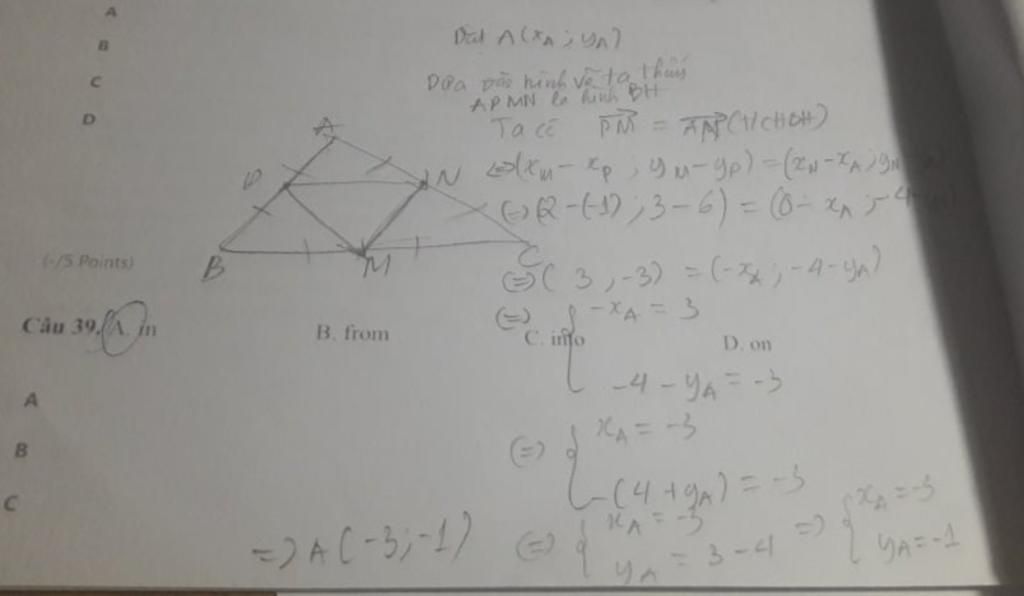 A
B
C
D
Đặt A(xA; yA)
Dựa vào hình vẽ ta thấy
APMN là hình BH
Ta có PM = AN (T/C HBH)
⇔ (xM − xP ; yM − yP) = (xN − xA ; yN
⇔ (2 − (−1) ; 3 − 6) = (0 − xA ; −4
⇔ ( 3 , −3) = (−xA ; −4 − yA)
⇔ { −xA = 3
−4 − yA = −3
⇔ { xA = −3
−(4 + yA) = −3
⇔ { xA = −3
yA = 3 − 4
⇒ { xA = −3
yA = −1
⇒ A(−3; −1)
A
P
N
B
M
C
(-/5 Points)
Câu 39. A. in B. from C. into D. on
A
B
C